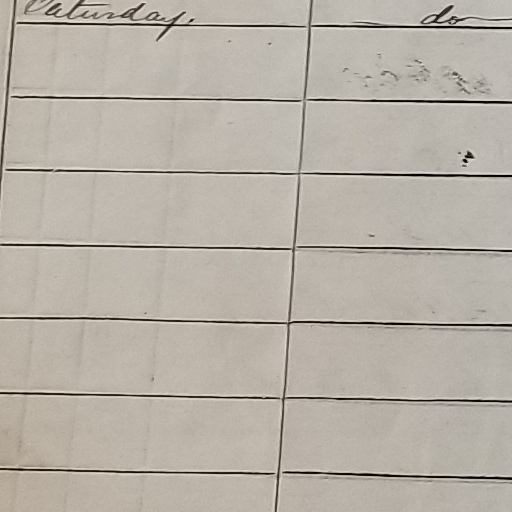 Saturday. do